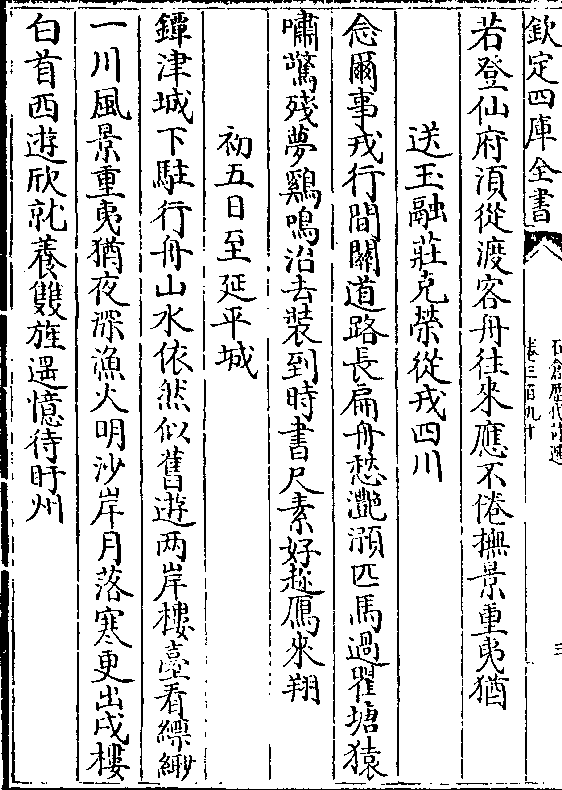 欽定四庫全書
卷三百九十
若登仙府湏從渡客舟往來應不倦撫景重夷猶
送玉融莊克榮從戎四川
念爾事戎行間關道路長扁舟愁灔澦匹馬過瞿塘猿
嘯驚殘夢鷄鳴治去裝到時書尺素好趂鴈來翔
初五日至延平城
鐔津城下駐行舟山水依然似舊遊两岸樓臺看縹緲
一川風景重夷猶夜深漁火明沙岸月落寒更出戍樓
白首西遊欣就養雙旌遥憶待盱州